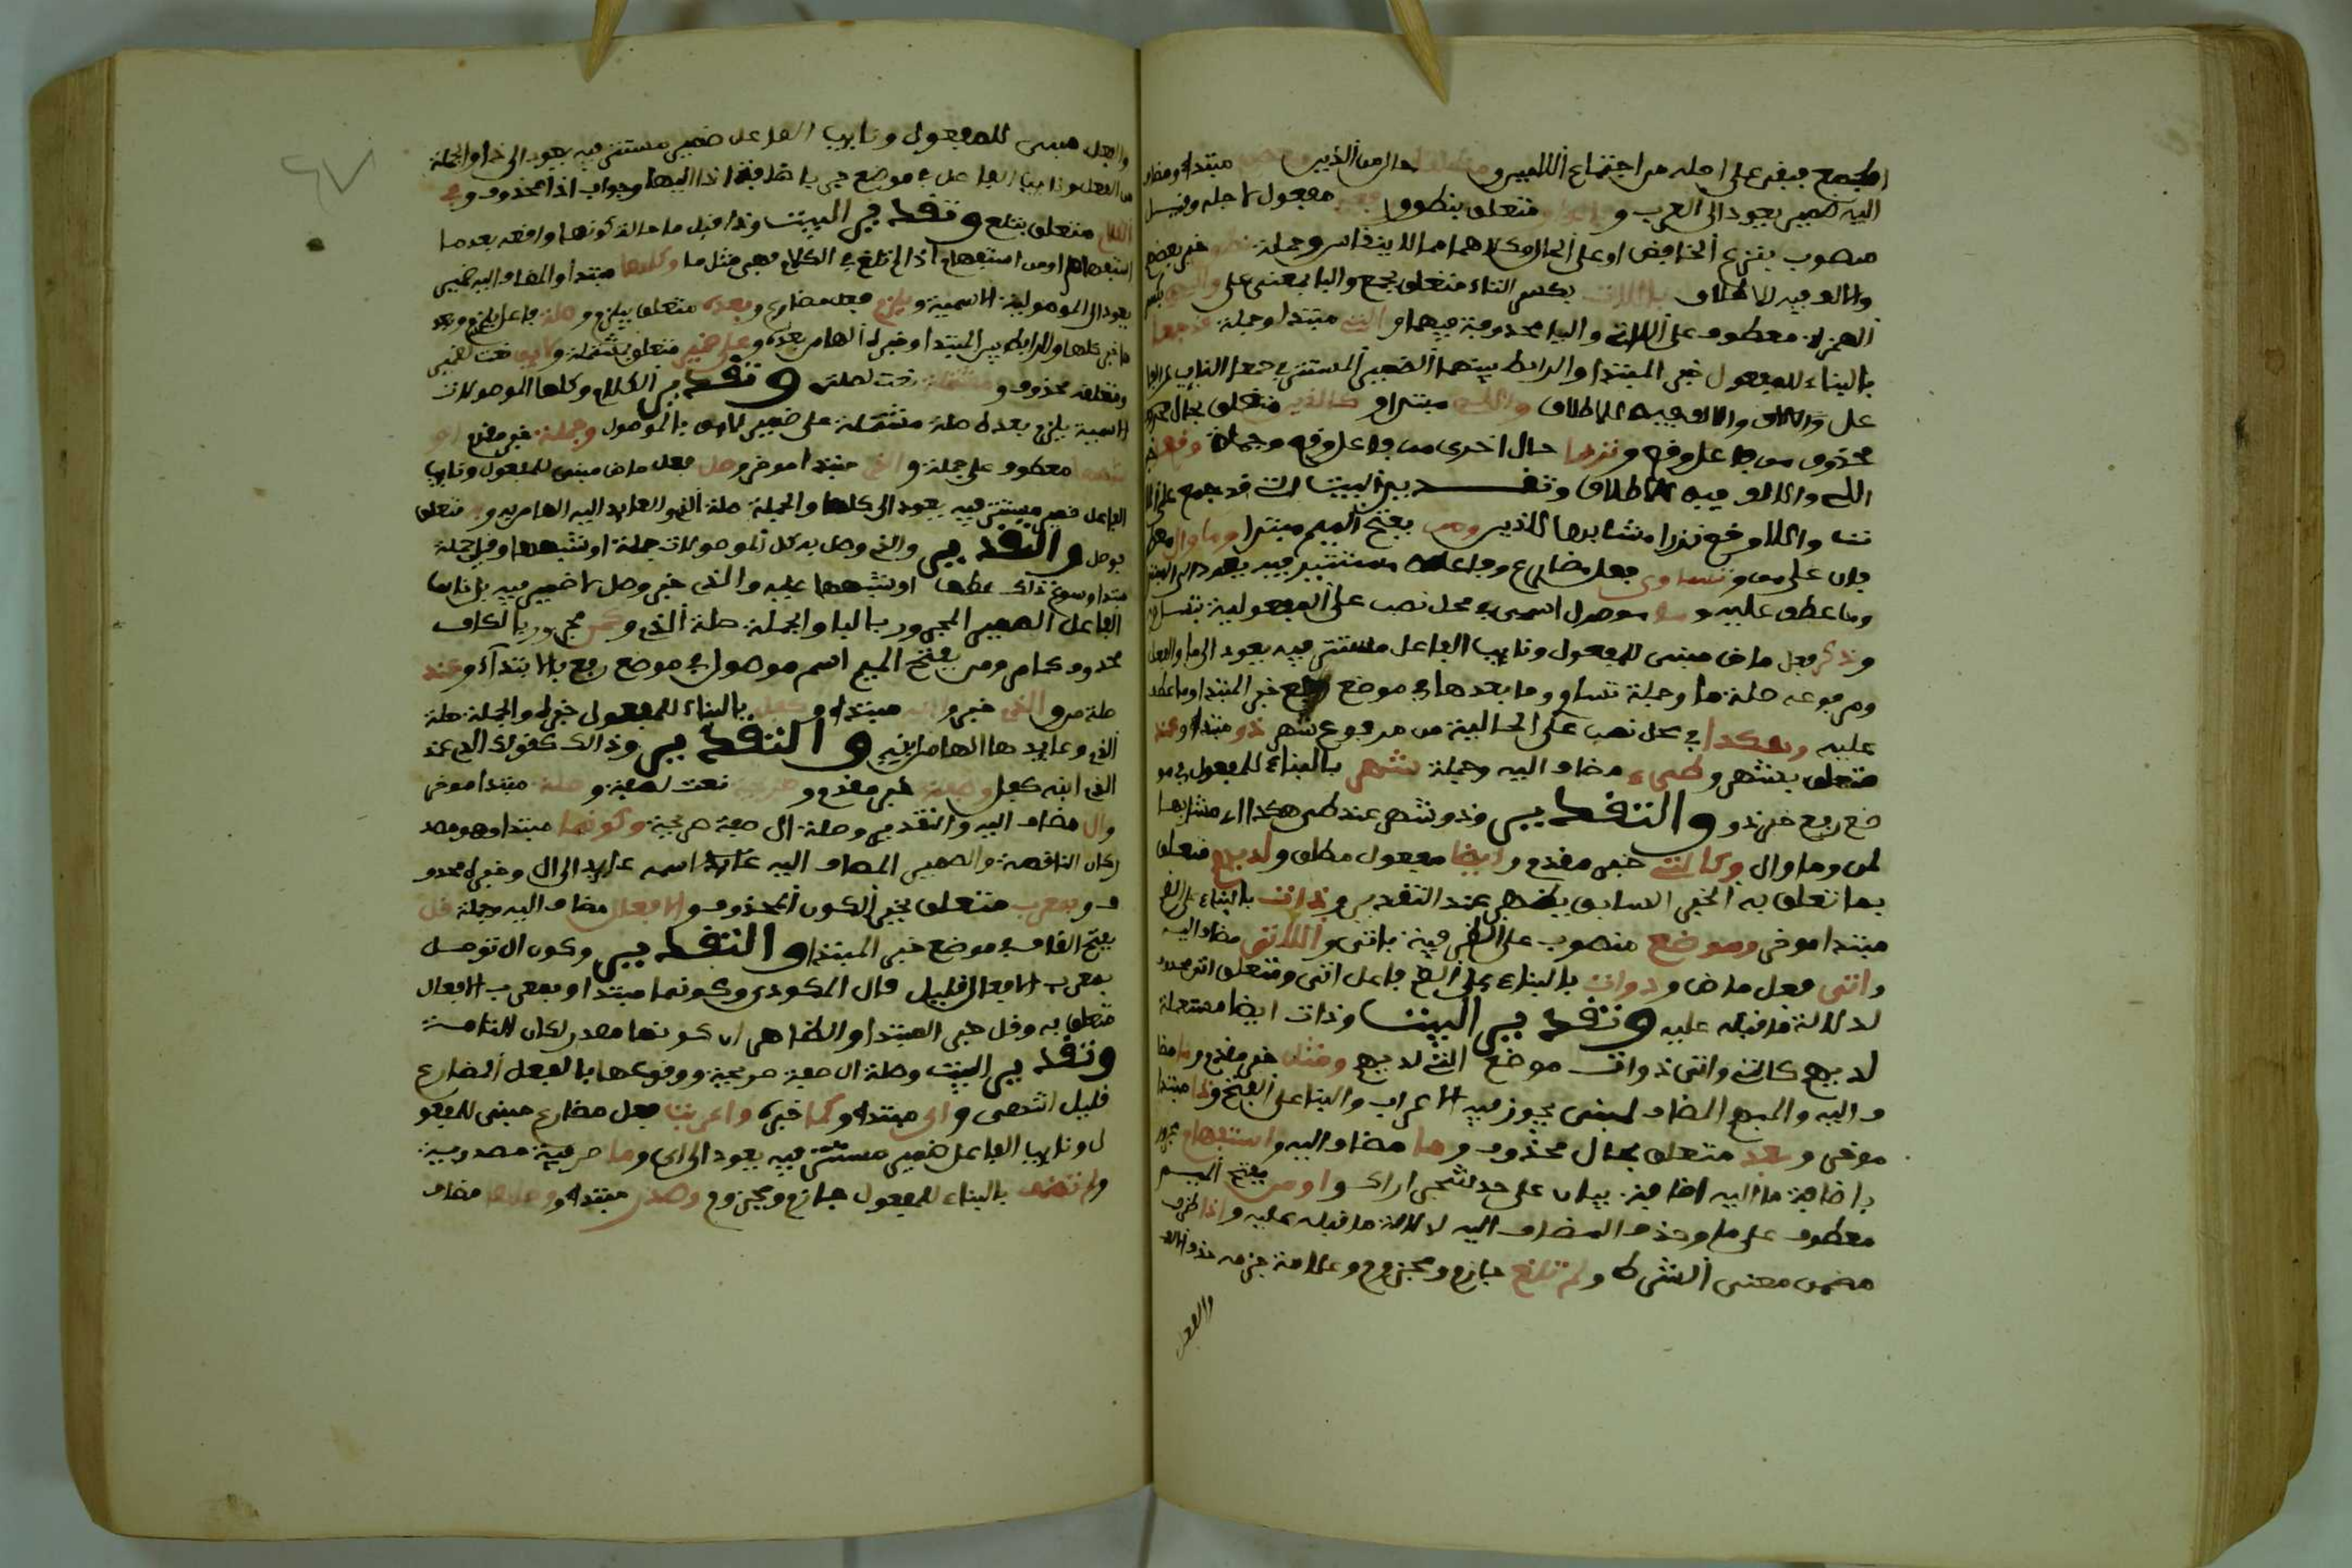 اليه ضمير يعود الى العرب و متعلق بنطقوا مفعول لاجله وقيل
منصوب بنزع الخافض او على الحال وكلاهما وجملة خبر بعض
والالف فيه للاطلاق باللات بكسر التاء متعلق بجمع والبا بمعنى على
الهمزة معطوف على اللات واليا محذوفة فيهما و التي مبتدا وجملة قد جمعا
بالبناء للمفعول خبر المبتدا والرابط بينهما الضمير المستتر في جمعا النايب عن الفا
عل والالف فيه للاطلاق مبتدا و كالذين متعلق بحال
محذوف من فاعل وقع ونزرا حال اخرى من فاعل وقع وجملة وقع خبر
اللاء والالف فيه للاطلاق وتقدير البيت اللات قد جمع على
واللاء وقع نزرا مشابها للذين ومن بفتح الميم مبتدا وما وال
على من وتساوى فعل مضارع وفاعله مستتر فيه يعود الى
وما عطف عليه وما موصول اسمي في محل نصب على المفعولية بتساو
وذكر فعل ماض مبني للمفعول ونايب الفاعل مستتر فيه يعود الى ما والفعل
ومرفوعه صلة ما وجملة تساو وما بعدها في موضع رفع خبر المبتدا وما عطف
عليه وهكذا في محل نصب على الحالية من مرفوع شهر ذو مبتدا وعند
متعلق بشهر وطيء مضاف اليه وجملة شهر بالبناء للمفعول في مو
ضع رفع خبر ذو والتقدير وذو شهر عند طيء هكذا اي مشابها
لمن وما وال وكالتي خبر مقدم وايضا مفعول مطلق ولديهم متعلق
بما تعلق به الخبر السابق عند التقدير وذات بالبناء على الضم
مبتدا موخر وموضع منصوب على الظرفية باتى واللاتي مضاف اليه
واتى فعل ماض وذوات بالبناء على الضم فاعل اتى ومتعلق اتى محذوف
لدلالة ما قبله عليه وتقدير البيت وذات ايضا مستعملة
لديهم كالتي واتى ذوات موضع التي لديهم ومثل خبر مقدم وما مضا
ف اليه والمبهم المضاف لمبني يجوز فيه الاعراب والبنا على الفتح وذا مبتدا
موخر وبعد متعلق بحال محذوف وما مضاف اليه واستفهام مجرور
باضافة ما اليه اضافة بيان على حد شجر اراك و او من بفتح الميم
معطوف على ما وحذف المضاف اليه لدلالة ما قبله عليه واذا ظرف
مضمن معنى الشرط و لم تلغ جازم ومجزوم وعلامة جزمه حذف الالف
والفعل
٤٧
والفعل مبني للمفعول ونايب الفاعل ضمير مستتر فيه يعود الى ذا والجملة
من الفعل ونايب الفاعل في موضع جر باضافة اذا اليها وجواب اذا محذوف وفي
الكلام متعلق بتلغ وتقدير البيت وذا مثل ما حالة كونها واقعة بعد ما
استفهام او من استفهام اذا لم تلغ في الكلام فهي مثل ما وكلها مبتدا والمضاف اليه ضمير
يعود الى الموصولية الاسمية و يلزم فعل مضارع وبعده متعلق بيلزم وصلة فاعل يلزم
خبر كلها والرابط بين المبتدا وخبره الها من بعده وعلى ضمير متعلق بمشتملة ولايق نعت لضمير
ومتعلقه محذوف و مشتملة نعت لصلة وتقدير الكلام وكلها الموصولات
الاسمية يلزم بعده صلة مشتملة على ضمير لايق بالموصول وجملة خبر مقدم او
شبهها معطوف على جملة و الذي مبتدا موخر وصل فعل ماض مبني للمفعول ونايب
الفاعل ضمير مستتر فيه يعود الى كلها والجملة صلة الذي والعايد اليه الها من به وبه متعلق
بوصل والتقدير والذي وصل به كل الموصولات جملة او شبهها وقيل جملة
مبتدا وسوغ ذلك عطف او شبهها عليه والذي خبر وصل لا ضمير فيه بل نايب
الفاعل الضمير المجرور بالبا والجملة صلة الذي وكمن مجرور بالكاف
محذوف كما مر ومن بفتح الميم اسم موصول في موضع رفع بالابتداء وعند
صلة من والذي خبر وابنه مبتدا و كفل بالبناء للمفعول خبره والجملة صلة
الذي وعايدها الها من ابنه والتقدير وذالك كقولك الذي عند
الذي ابنه كفل وصفة خبر مقدم و صريحة نعت لصفة و صلة مبتدا موخر
وال مضاف اليه والتقدير وصلة ال صفة صريحة وكونها مبتدا وهو مصد
ركان الناقصة والضمير المضاف اليه اسمه عايد الى ال وخبره محذو
ف وبمعرب متعلق بخبر الكون المحذوف و الافعال مضاف اليه وجملة قل
بفتح القاف في موضع خبر المبتدا والتقدير وكون ال توصل
بمعرب الافعال قليل قال المكودي وكونها مبتدا وبمعرب الافعال
متعلق به وقل خبر المبتدا والظاهر ان كونها مصدر لكان التامة
وتقدير البيت وصلة ال صفة صريحة ووقوعها بالفعل المضارع
قليل انتهى واي مبتدا وكما خبره واعربت فعل مضارع مبني للمفعو
ل ونايب الفاعل ضمير مستتر فيه يعود الى اي وما حرفية مصدرية
ولم تضف بالبناء للمفعول جازم ومجزوم وصدر مبتدا ووصلها مضاف